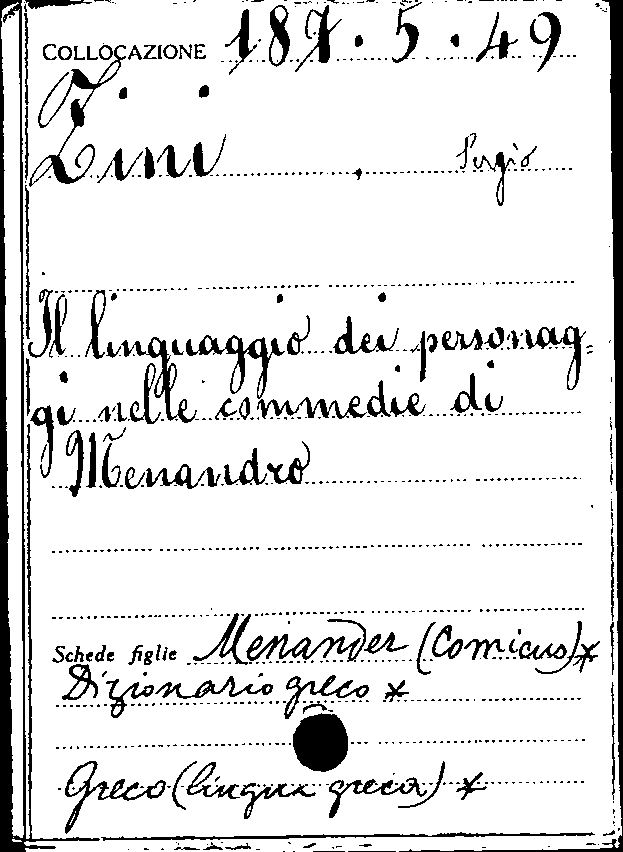 COLLOCAZIONE 187.5.49
Zini, Sergio
Il linguaggio dei personag=
gi nelle commedie di
Menandro
Schede figlie Menander (Comicus)*
Dizionario greco *
Greco (lingua greca) *